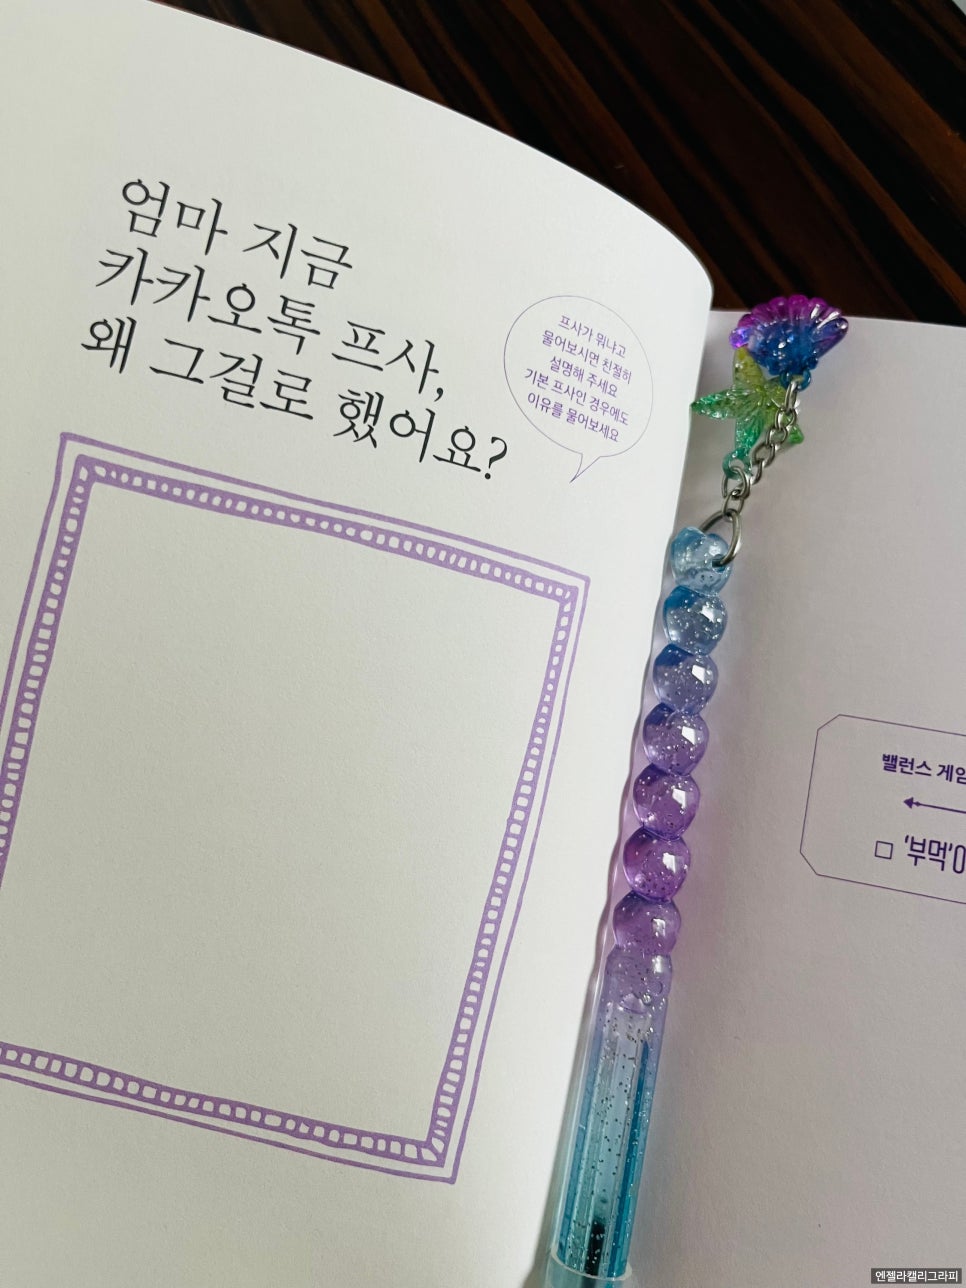 엄마 지금
카카오톡 프사,
왜 그걸로 했어요?
프사가 뭐냐고
물어보시면 친절히
설명해 주세요
기본 프사인 경우에도
이유를 물어보세요
밸런스 게임
☐ '부먹'이
엔젤라캘리그라피